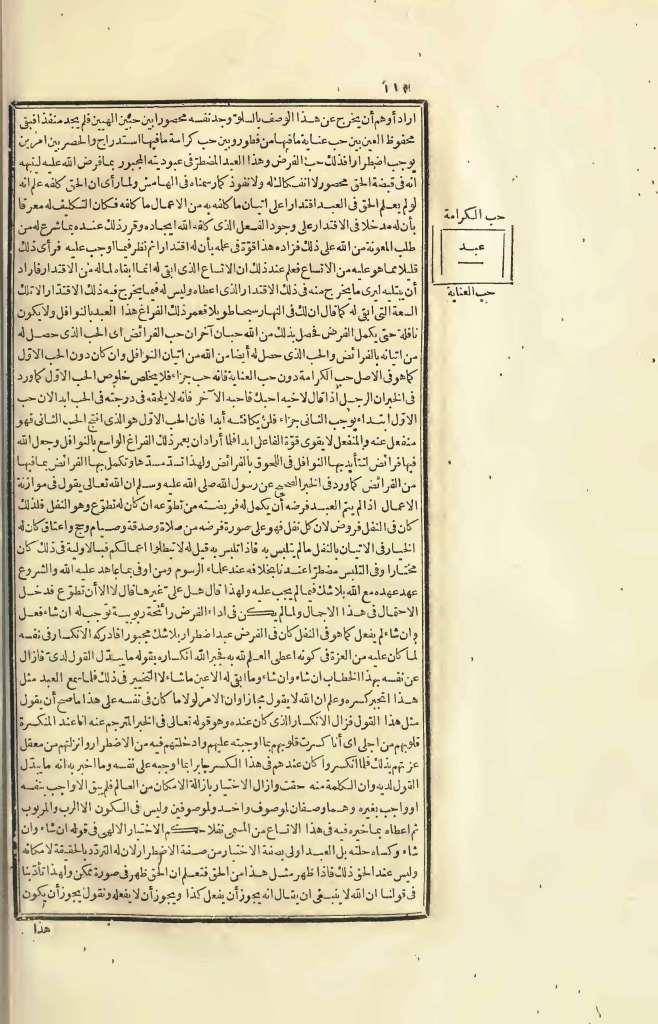 ١١٣
اراد أو هم أن يخرج عن هذا الوصف بالسلوّ وجد نفسه محصورا بين حبين الهيين فلم يجد منفذا فبقى
محفوظ العين بين حب عناية ما فيها من فطور وبين حب كرامة ما فيها استدراج والحصر بين امرين
يوجب اضطرارا فذلك حب الفرض وهذا العبد المضطرّ فى عبوديته المجبور بما فرض الله عليه لينبهه
انه فى قبضة الحق محصور لا انفكاك له ولا نفوذ كما رسمناه فى الهامش ولما رأى ان الحق كلفه علم انه
لو لم يعلم الحق فى العبد اقتدارا على اتيان ما كلفه به من الاعمال ما كلفه فكان التكليف له معرّفا
بأن له مدخلا فى الاقتدار على وجود الفعل الذى كلفه الله ايجاده وقرر ذلك عنده بما شرع له من
طلب المعونة من الله على ذلك فزاده هذا قوّة فى علمه بأن له اقتدارا ثم نظر فيما اوجب عليه فرأى ذلك
قليلا مما هو عليه من الاتساع فعلم عند ذلك ان الاتساع الذى ابقى له انما ابقاه لما له من الاقتدار فأراد
أن يبتليه ليرى ما يخرج منه فى ذلك الاقتدار الذى اعطاه وليس له فيما يخرج فيه ذلك الاقتدار الا تلك
السعة التى ابقى له كما قال ان لك فى النهار سبحا طويلا فعمر ذلك الفراغ هذا العبد بالنوافل ولا يكون
نافلة حتى يكمل الفرض فحصل بذلك من الله حبان آخران حب الفرائض اى الحب الذى حصل له
من اتيانه بالفرائض والحب الذى حصل له أيضا من الله من اتيان النوافل وان كان دون الحب الاوّل
كما هو فى الاصل حب الكرامة دون حب العناية فانه حب جزاء فلا يخلص خلوص الحب الاوّل كما ورد
فى الخبر ان الرجل اذا قال لاخيه احبك فاحبه الآخر فانه لا يلحقه فى درجته فى الحب ابدا لان حب
الاوّل ابتداء وحب الثانى جزاء فلن يكافئه أبدا فان الحب الاوّل هو الذى انتج الحب الثانى فهو
منفعل عنه والمنفعل لا يقوى قوّة الفاعل ابدا فلما أراد ان يعمر ذلك الفراغ الواسع بالنوافل وجعل الله
فيها فرائض لتتأيد بها النوافل فى اللحوق بالفرائض ولهذا تسدّ مسدّها وتكمل بها الفرائض بما فيها
من الفرائض كما ورد فى الخبر الصحيح عن رسول الله صلى الله عليه وسلم ان الله تعالى يقول فى موازنة
الاعمال اذا لم يتم العبد فرضه أن يكمل له فريضته من تطوّعه ان كان له تطوّع وهو النفل فلذلك
كان فى النفل فروض لان كل نفل فهو على صورة فرضه من صلاة وصدقة وصيام وحج واعتاق كان له
الخيار فى الاتيان بالنفل ما لم يتلبس به فاذا تلبس به قيل له لا تبطلوا اعمالكم فبالاولية فى ذلك كان
مختارا وفى التلبس مضطرّا عندنا بخلافه عند علماء الرسوم ومن اوفى بما عاهد عليه الله والشروع
عهد عهده مع الله بلا شك فيما لم يجب عليه ولهذا قال هل علىّ غيرها قال لا الا أن تطوّع فدخل
الاحتمال فى هذا الاجمال ولما لم يكن فى اداء الفرض رائحة ربوبية توجب له ان شاء فعل
وان شاء لم يفعل كما هو فى النفل كان فى الفرض عبد اضطرار بلا شك مجبورا فادركه الانكسار فى نفسه
لما كان عليه من العزة فى كونه اعطى العلم لله به فجبر الله انكساره بقوله ما يبدّل القول لدىّ فازال
عن نفسه بهذا الخطاب ان شاء وان شاء وما ابقى له الا عين ماشاء لا التخيير فى ذلك فلما سمع العبد مثل
هذا انجبر كسره وعلم ان الله لا يقول مجازا وان الامر لولا ما كان فى نفسه على هذا ما صح أن يقول
مثل هذا القول فزال الانكسار الذى كان عنده وهو قوله تعالى فى الخبر المترجم عنه انا عند المنكسرة
قلوبهم من اجلى اى أنا كسرت قلوبهم بما اوجبته عليهم وادخلتهم فيه من الاضطرار وانزلتهم من معقل
عزتهم بذلك فلما انكسروا كان عندهم فى هذا الكسر جابرا بما اوجبه على نفسه وما اخبر به انه ما يبدّل
القول لديه وان الكلمة منه حقت وازال الاختيار بازالة الامكان من العالم فلم يبق الا واجب بنفسه
او واجب بغيره وهما وصفان لموصوف واحد ولموصوفين وليس فى الكون الا الرب والمربوب
ثم اعطاه بما خيره فيه فى هذا الاتساع من المسمى نفلا حكم الاختيار الالهى فى قوله ان شاء وان
شاء وكساه حلته بل العبد اولى بصفة الاختيار من صفة الاضطرار لان له التردّد بالحقيقة لامكانه
وليس عند الحق ذلك فاذا ظهر مثل هذا من الحق فتعلم ان الحق ظهر فى صورة ممكن ولهذا تأدّبنا
فى قولنا ان الله لا ينبغى ان يقال انه يجوز أن يفعل كذا ويجوز أن لا يفعله ونقول يجوز أن يكون
هذا
حب الكرامة
عبد
حب العناية